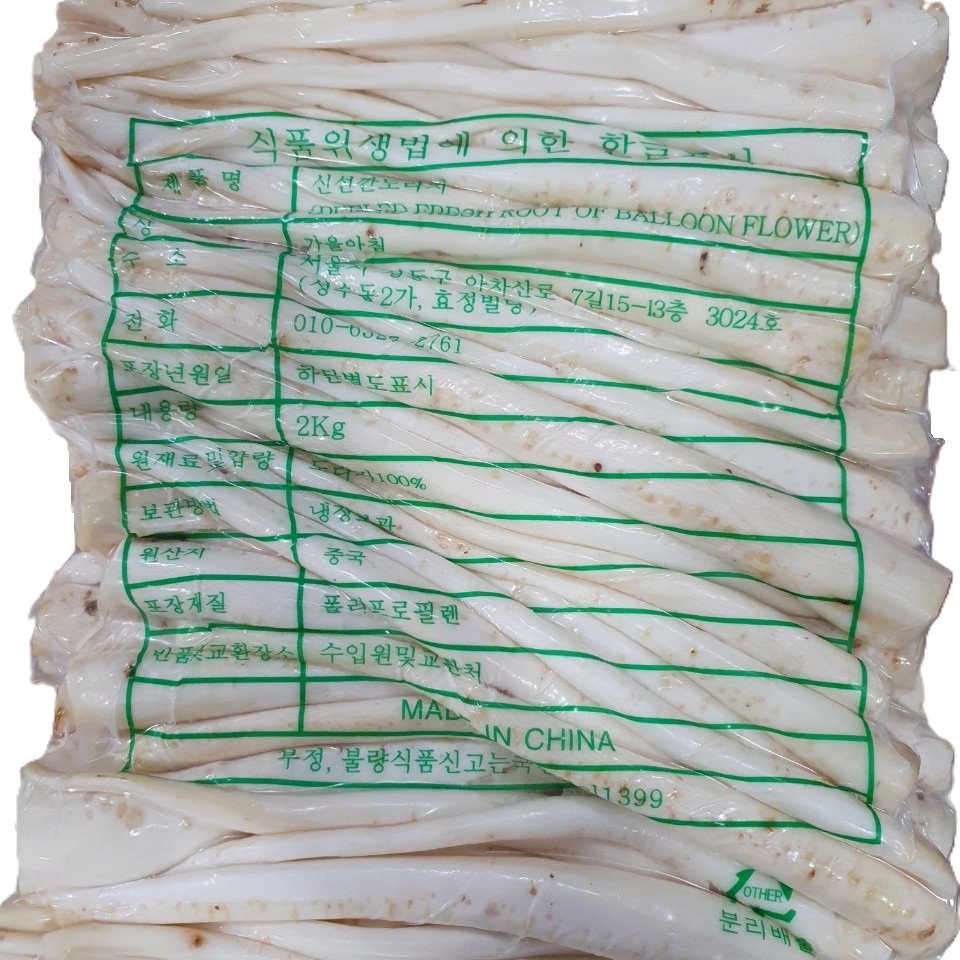 식품위생법에 의한 한글표시
제품명 신선깐도라지
(PEELED FRESH ROOT OF BALLOON FLOWER)
상 가을아침
주소 서울시 성동구 아차산로 7길15-13층 3024호
(성수동2가, 효정빌딩)
전화 010-6324-2761
포장년월일 하단별도표시
내용량 2Kg
원재료및함량 도라지100%
보관방법 냉장보관
원산지 중국
포장재질 폴리프로필렌
반품및교환장소 수입원및교환처
MADE IN CHINA
부정, 불량식품신고는국
1399
OTHER
분리배출